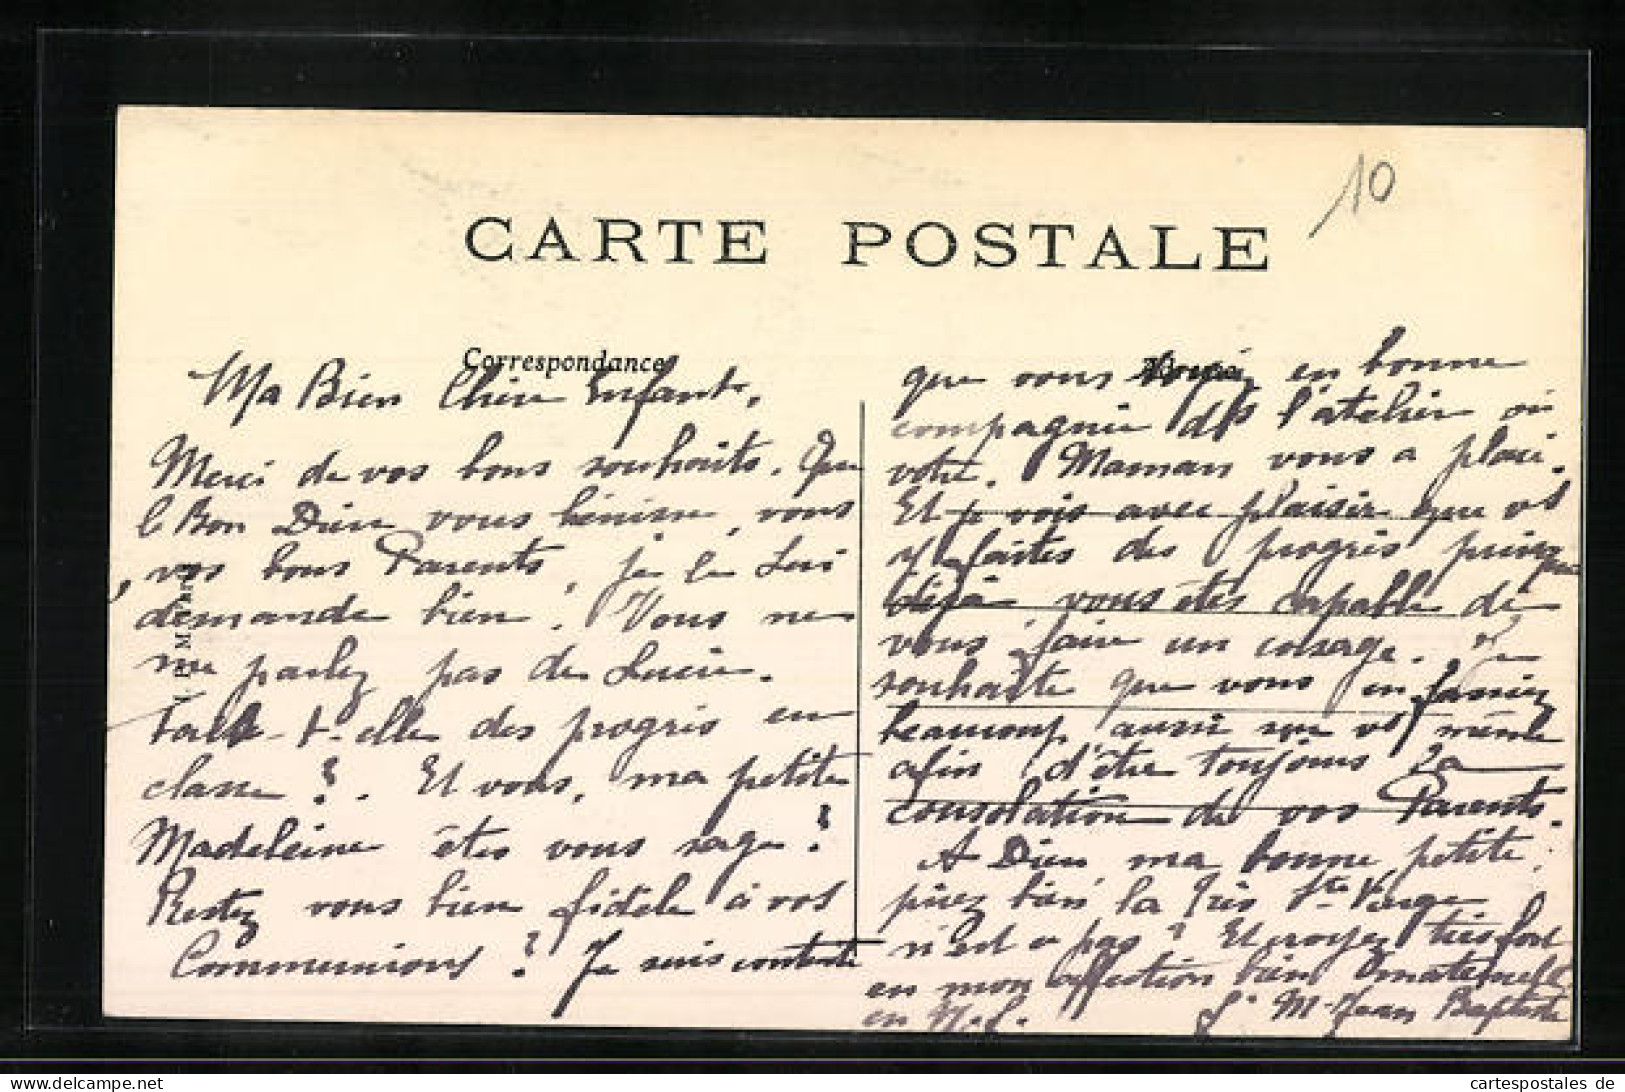 10
CARTE POSTALE
Correspondance
Ma Bien Chère Enfant,
Merci de vos bons souhaits. Que
le Bon Dieu vous bénisse, vous
, vos bons Parents, je le Lui
demande bien! Vous ne
me parlez pas de Lucie.
fait-elle des progrès en
classe ?. Et vous, ma petite
Madeleine êtes vous sage?
Restez vous bien fidèle à vos
Communions ? Je suis contente
que vous soyez en bonne
compagnie ds l'atelier où
votre Maman vous a placé.
Et je vois avec plaisir que vs
y faites des progrès puisque
déjà vous êtes capable de
vous faire un corsage. Je
souhaite que vous en fassiez
beaucoup aussi sur vs même
afin d'être toujours la
consolation de vos Parents.
A Dieu, ma bonne petite,
priez bien la Très Ste Vierge
n'est ce pas? Et croyez très fort
en mon affection bien maternelle
en N.S.
Sr M-Jean Baptiste
cartespostales de